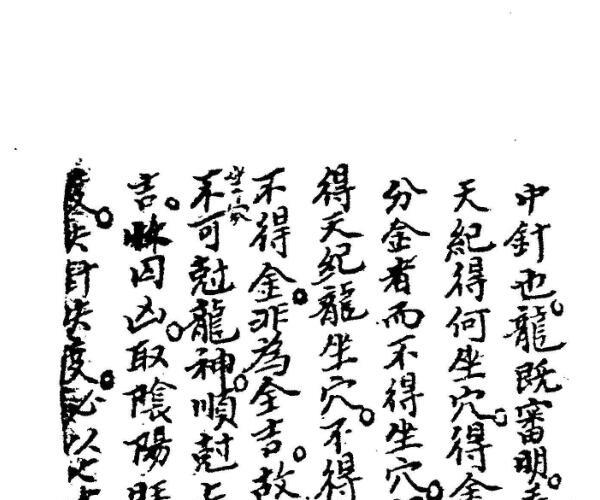 中針也。龍既審明。
天紀得何坐穴。得金
分金者而不得坐穴。
得天紀龍坐穴。不得
不得金。非為全吉。故
坐家
不可尅龍神。順尅
吉。休囚凶。取陰陽旺
度。失針失度。必以七